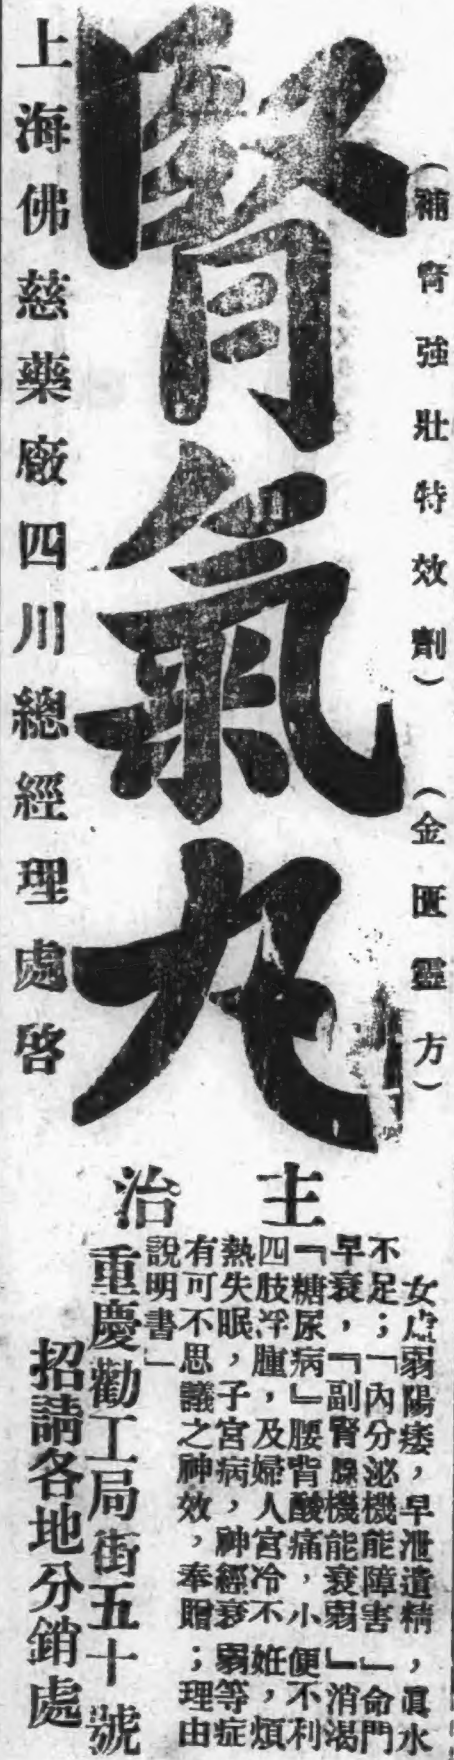 (補腎強壯特效劑)(金匱靈方)
腎氣丸
上海佛慈藥廠四川總經理處啓
主治
女虛弱陽痿，早泄遺精，眞水
不足；「內分泌機能障害」命門
早衰，『副腎腺機能衰弱』消渴
『糖尿病』腰背酸痛，小便不利
四肢浮腫，及婦人宮冷不姙，煩
熱失眠，子宮病，神經衰弱等症
有可不思議之神效，奉贈；理由
說明書」
重慶勸工局街五十號
招請各地分銷處